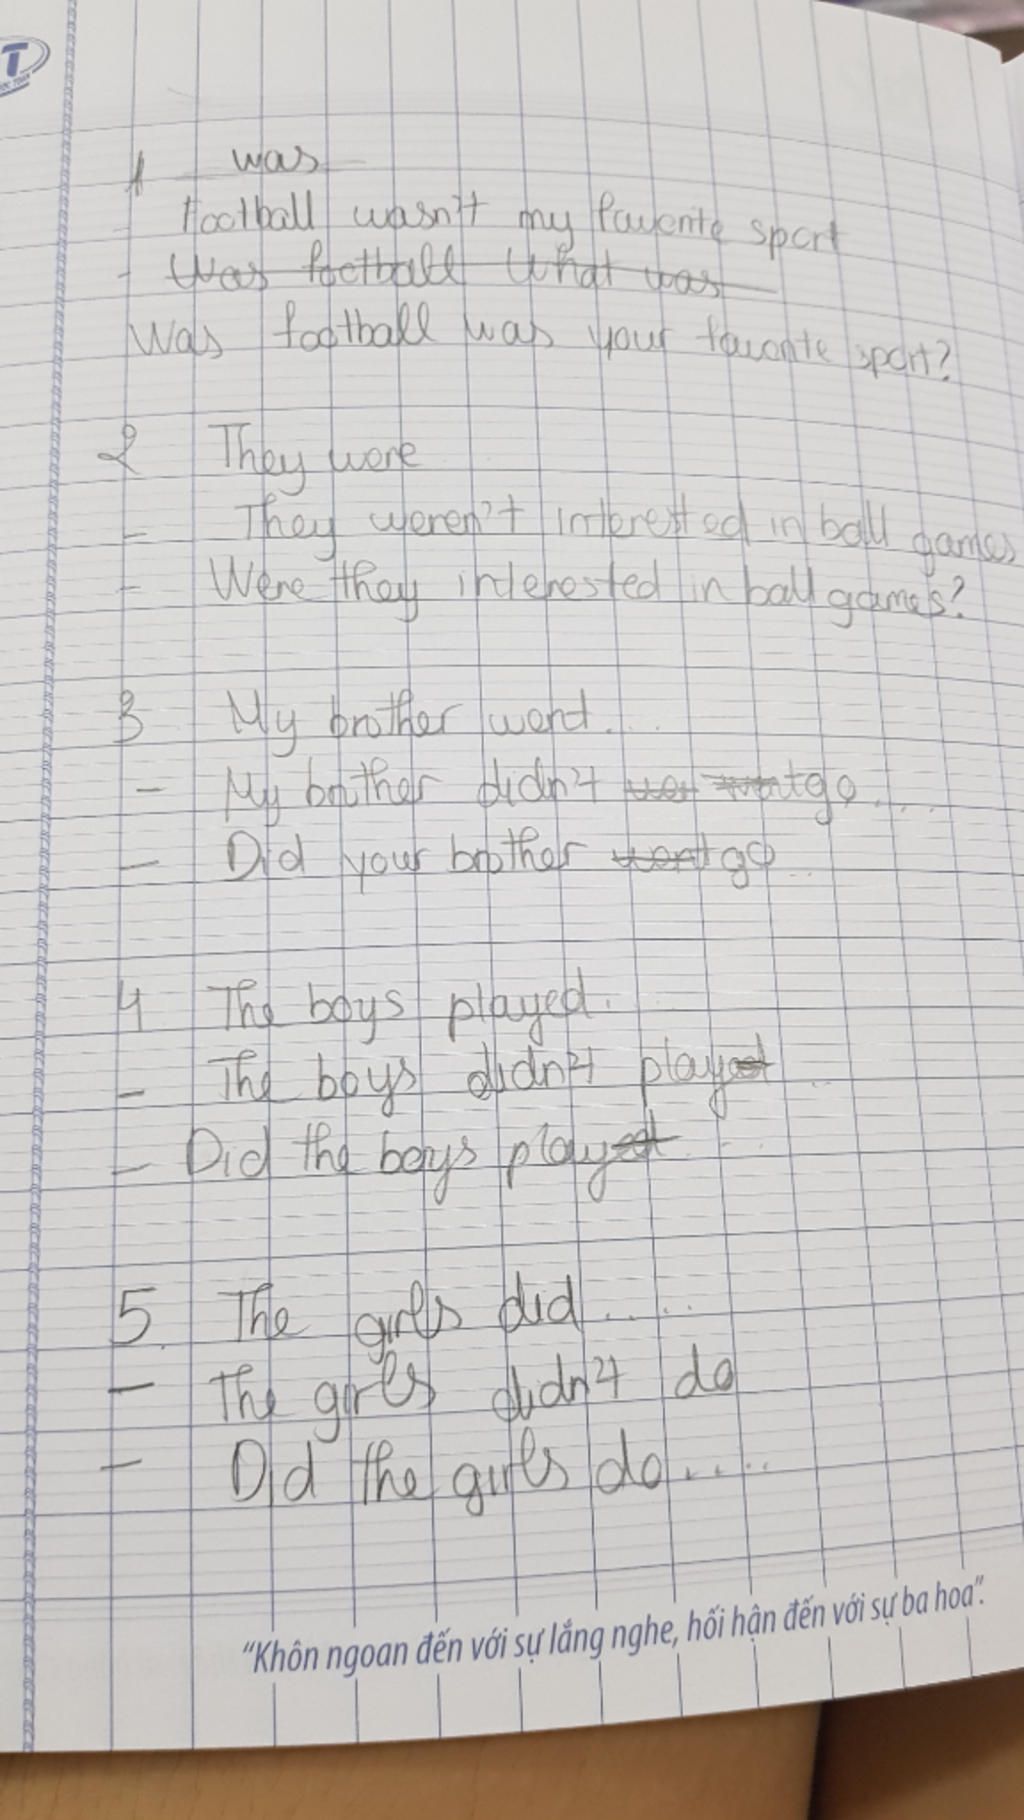 T
1 was
Football wasn't my favorite sport
- Was football what was
Was football was your favorite sport?
2 They were
- They weren't interested in ball games
- Were they interested in ball games?
3 My brother went...
- My brother didn't go....
- Did your brother went go...
4 The boys played.
- The boys didn't played ..
- Did the boys played ...
5. The girls did.....
- The girls didn't do
- Did the girls do.....
"Khôn ngoan đến với sự lắng nghe, hối hận đến với sự ba hoa".